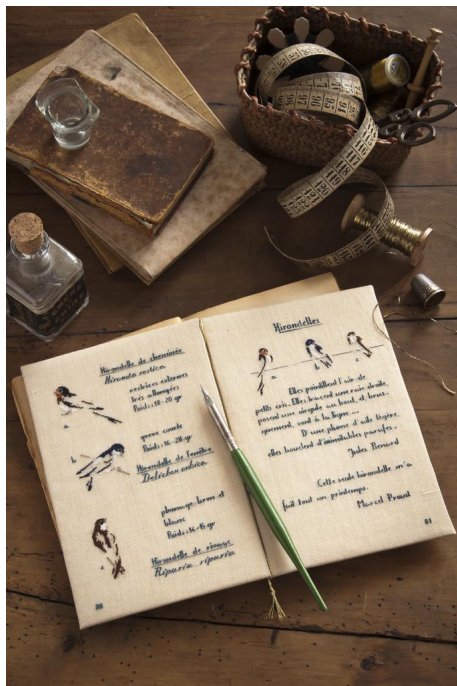 Hirondelle de cheminée
Hirundo rustica
rectrices externes
très allongées
Poids: 18-20 gr
queue courte
Poids: 16-20 gr
Hirondelle de fenêtre
Delichon urbica
plumage brun et
blanc
Poids: 14-15 gr
Hirondelle de rivage
Riparia riparia
80
Hirondelles
Elles pointillent l'air de
petits cris. Elles tracent une raie droite,
posent une virgule au bout, et, brus-
quement, vont à la ligne...
D'une plume d'aile légère
elles bouclent d'inimitables parafes.
Jules Renard
Cette seule hirondelle m'a
fait tout un printemps.
Marcel Proust
81